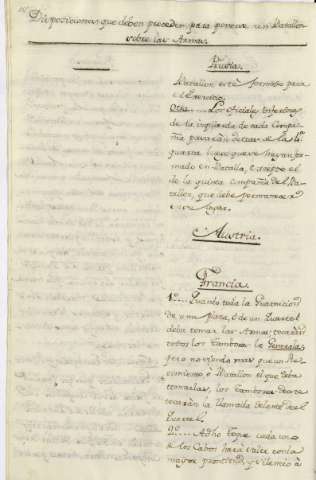 Disposiciones que deben preceder, para poner un Batallon
sobre las Armas.
Rusia.
Batallon este formado para
el Exercicio.
Otra .... Los oficiales
de la izquierda de cada Compa-
ñia pasarán detras de la
quarta luego que se haya for-
mado en Batalla, excepto el
de la quinta compañia del Ba-
tallon, que debe permanecer
en su lugar.
Austria.
Francia.
1º.... Quando toda la Guarnicion
de una plaza, ó de un Quartel
deba tomar las Armas; tocarán
todos los tambores la Generala,
pero no siendo mas que un Re-
gimiento ó Batallon el que deba
tomarlas, los tambores de este
tocarán la Llamada delante de el
Quartel.
2º.... A dho Toque cada uno
de los Cabos hará salir con la
mayor prontitud, y silencio à